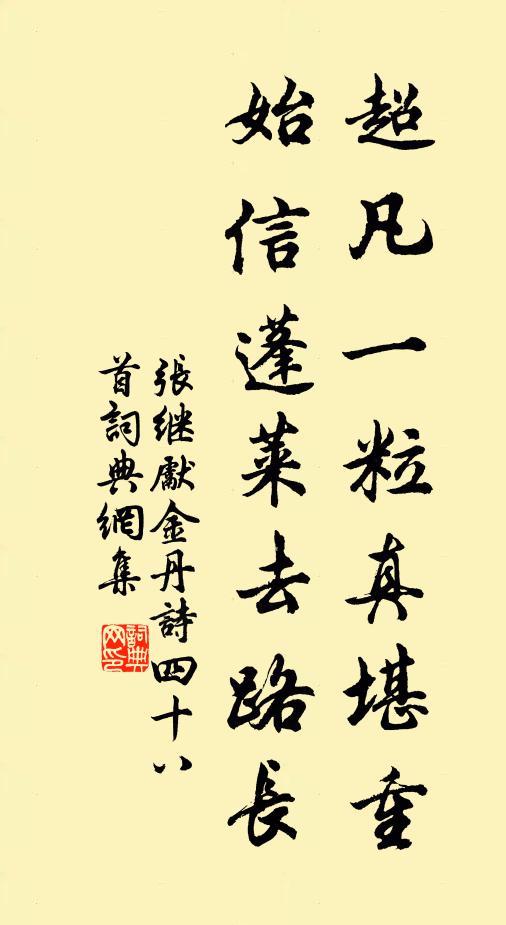 超凡一粒真堪重
始信蓬莱去路長
張继獻金丹詩四十八
首詞典網集
詞典
网印